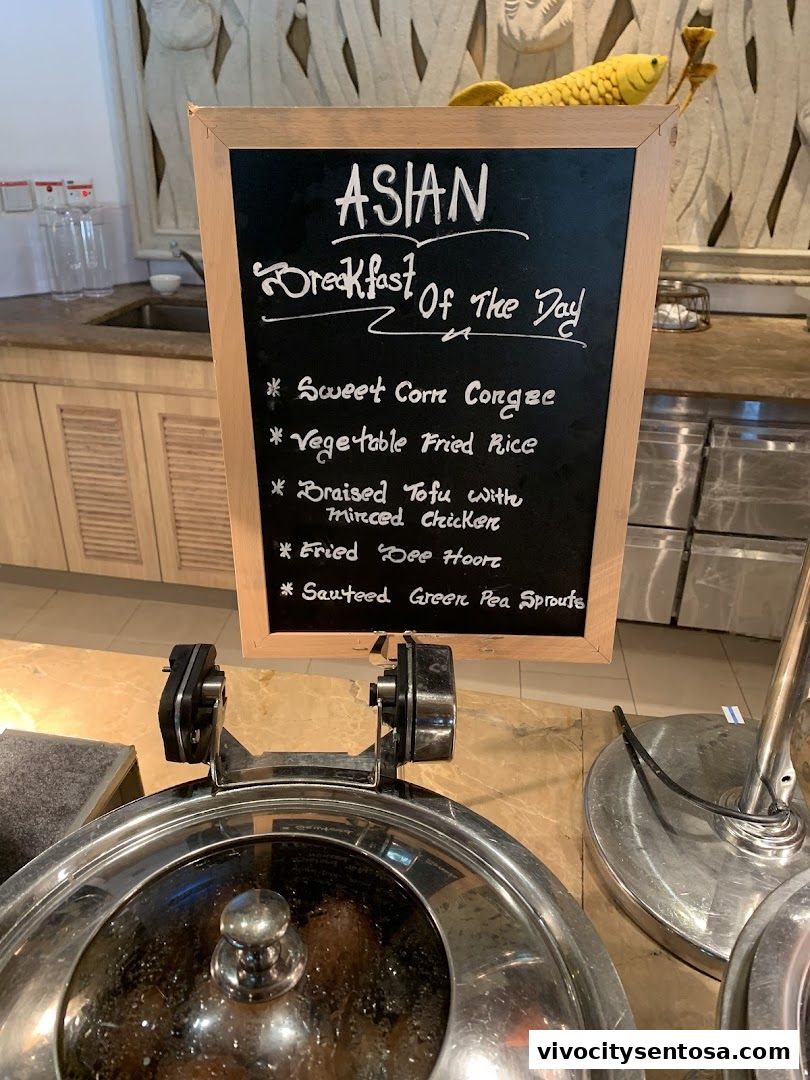 ASIAN
Breakfast Of The Day
* Sweet Corn Congee
* Vegetable Fried Rice
* Braised Tofu with
Minced Chicken
* Fried Bee Hoon
* Sauteed Green Pea Sprouts
vivocitysentosa.com